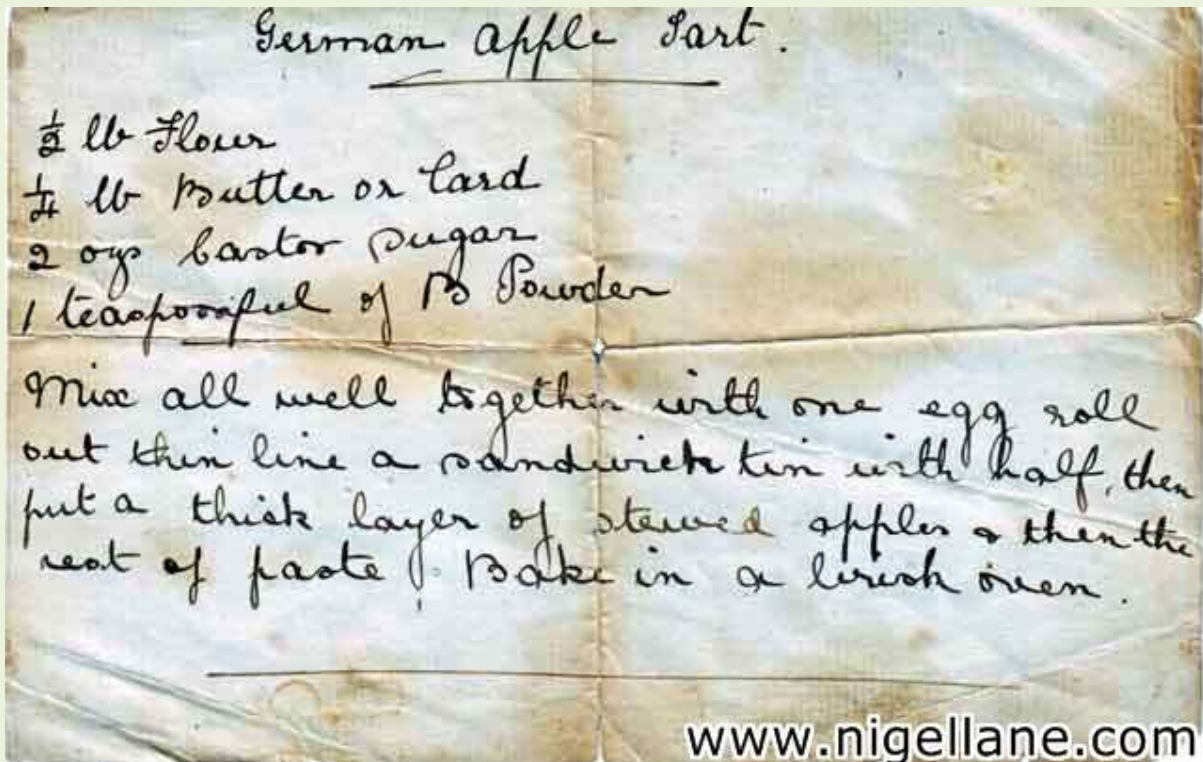 German Apple Tart.
½ lb Flour
¼ lb Butter or Lard
2 ozs Castor Sugar
1 teaspoonful of B Powder
Mix all well together with one egg roll
out thin line a sandwich tin with half, then
put a thick layer of stewed apples & then the
rest of paste. Bake in a brisk oven.
www.nigellane.com